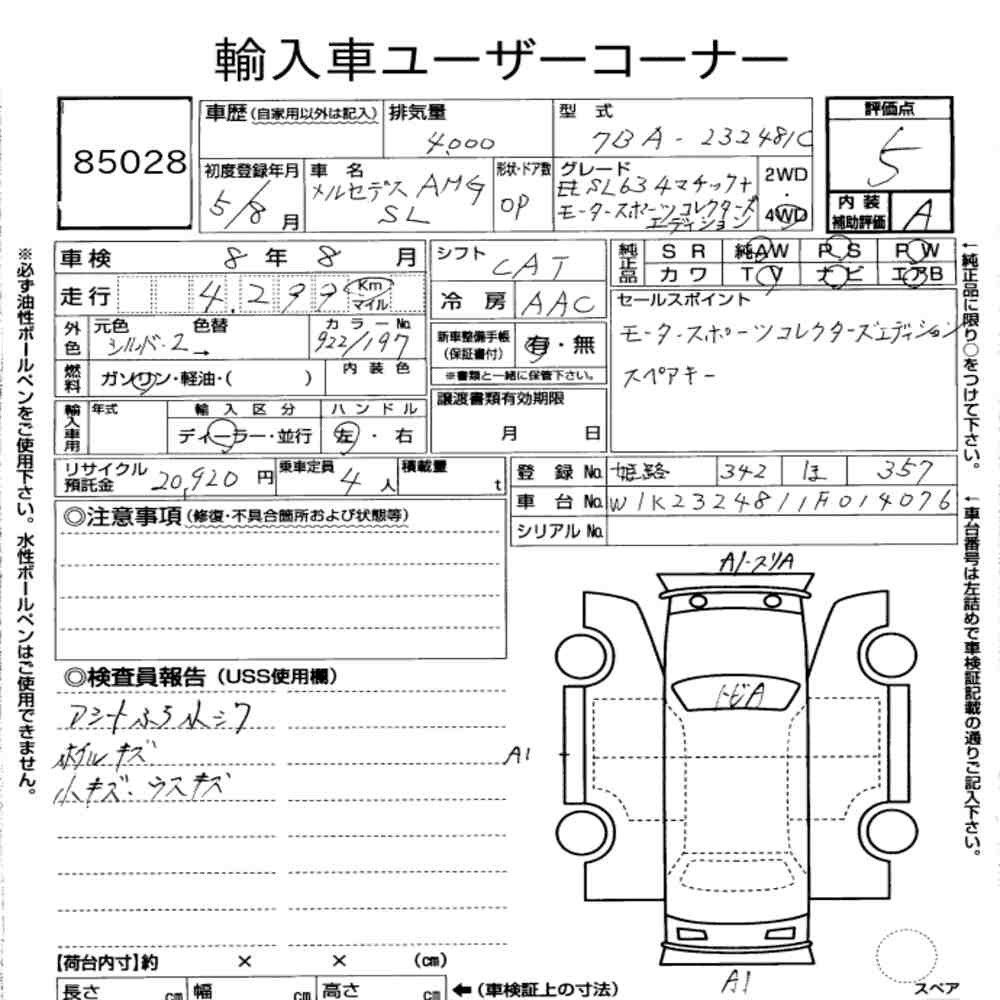 輸入車ユーザーコーナー
85028
車歴 (自家用以外は記入)
排気量
4,000
型 式
7BA-232481C
評価点
5
初度登録年月
5/8月
車 名
メルセデスAMG
SL
形状・ドア数
OP
グレード
SL63 4マチック+
モータースポーツコレクターズ
エディション
2WD
・
4WD
内 装
補助評価
A
車検 8年 8月
走行 4,299 Km
マイル
外色
元色 色替
シルバー2→
カラーNo.
922/197
燃料
ガソリン・軽油・( )
内 装 色
輸入車用
年式
輸 入 区 分
ディーラー・並行
ハ ン ド ル
左・右
シフト
CAT
冷 房 AAC
新車整備手帳
(保証書付)
有・無
※書類と一緒に保管下さい。
譲渡書類有効期限
月 日
純正品
S R 純AW P S P W
カ ワ T V ナ ビ エアB
セールスポイント
モータースポーツコレクターズエディション
スペアキー
リサイクル
預託金
20,920円
乗車定員 4人
積載量 t
登 録 No. 姫路 342 ほ 357
車 台 No. W1K2324811F014076
シリアル No.
◎注意事項 (修復・不具合箇所および状態等)
◎検査員報告 (USS使用欄)
ホイルキズ
小キズ・ウスキズ
A1・スリA
トビA
A1
A1
スペア
【荷台内寸】約 × × (cm)
長さ cm 幅 cm 高さ cm ←(車検証上の寸法)
※必ず油性ボールペンをご使用下さい。水性ボールペンはご使用できません。
←純正品に限り○をつけて下さい。
←車台番号は左詰めで車検証記載の通りご記入下さい。